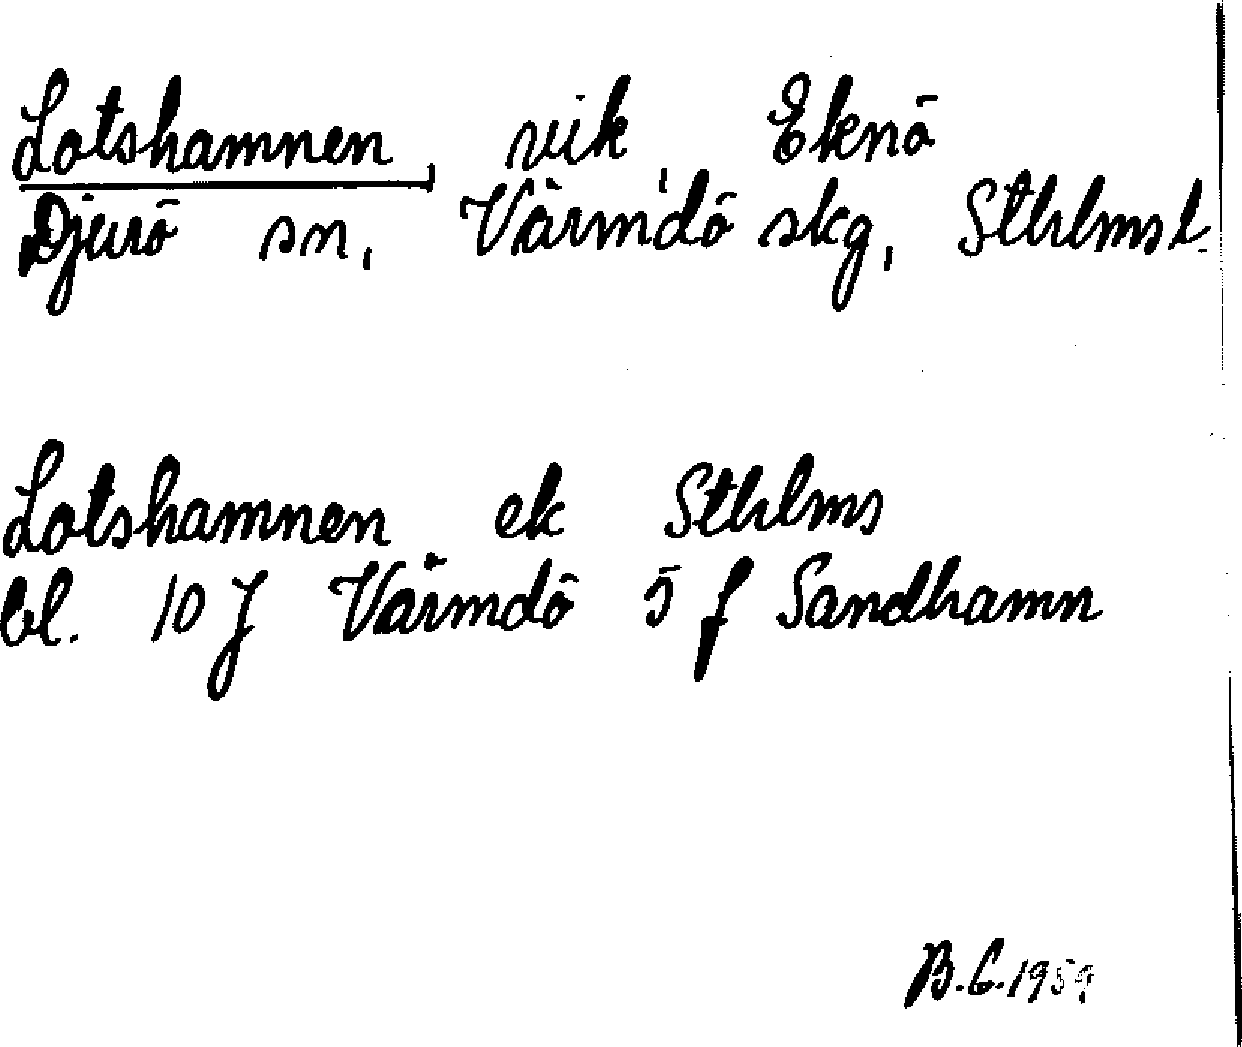 Lotshamnen, vik, Eknö
Djurö sn, Värmdö skg, Sthlms l.
Lotshamnen ek Sthlms
bl. 10 J Värmdö 5 f Sandhamn
B.C. 1959